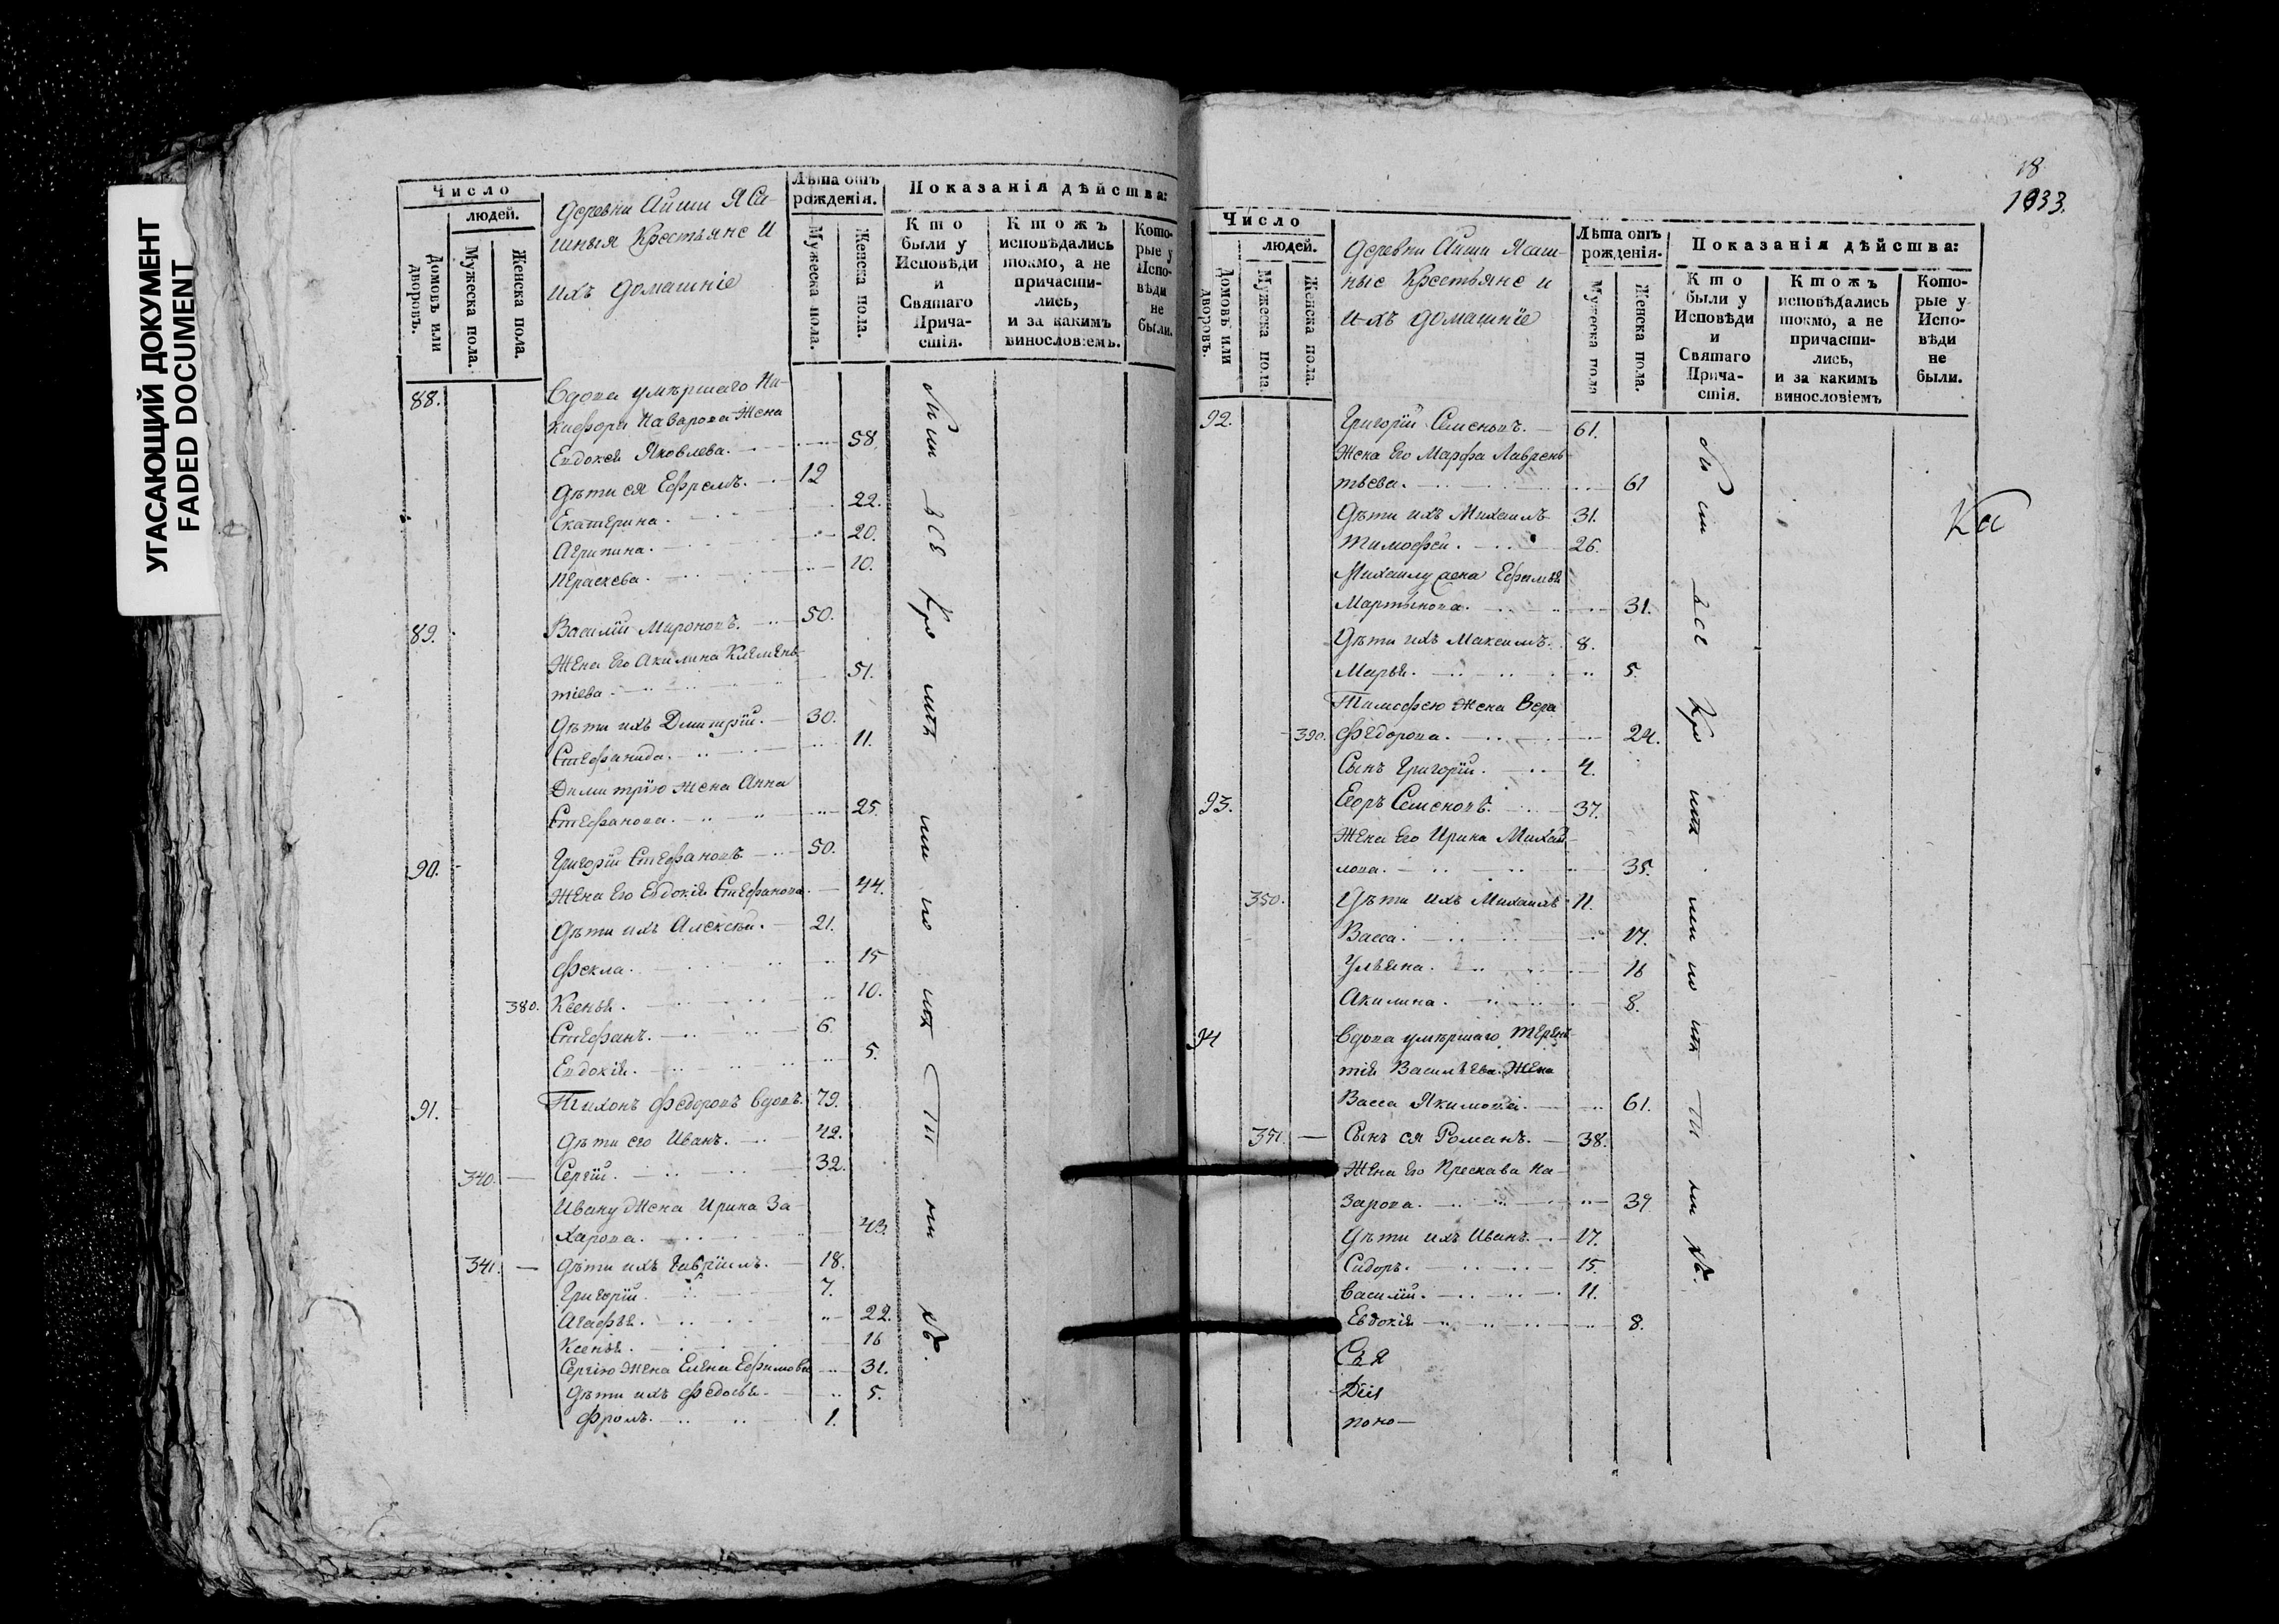 УГАСАЮЩИЙ ДОКУМЕНТ
FADED DOCUMENT
Число
людей.
Домовъ или дворовъ.
Мужеска пола.
Женска пола.
деревни Айши Яса-
шныя Крестьяне и
ихъ домашніе
Лѣта отъ
рожденія.
Мужеска пола.
Женска пола.
Показанія дѣйства:
Кто
были у
Исповѣди
и
Святаго
Прича-
стія.
Ктожъ
исповѣдались
токмо, а не
причасти-
лись,
и за какимъ
винословіемъ.
Кото-
рые у
Испо-
вѣди
не
были.
88. Вдова умѣршаго Ни-
кифора Назарова Жена
Евдокея Яковлева. 58.
Дѣти ея Ефремъ. 12
Екатерина. 22.
Агрипина. 20.
Пераскева. 10.
89. Василій Мироновъ. 50.
Жена Его Акилина Клемень-
тіева. 51.
Дѣти ихъ Дмитрій. 30.
Стефанида. 11.
Дмитрію жена Анна
Стефанова. 25.
90. Григорій Стефановъ 50.
Жена Его Евдокія Стефанова. 44.
Дѣти ихъ Алексѣй. 21.
Фекла. 15
380. Ксенья. 10.
Стефанъ. 6.
Евдокія. 5.
91. Тихонъ Федоровъ вдовъ. 79.
Дѣти его Иванъ. 42.
340. Сергій. 32.
Ивану Жена Ирина За-
харова. 43.
341. Дѣти ихъ Гавріилъ. 18.
Григорій. 7.
Агафья. 22.
Ксенья. 16
Сергію Жена Елена Ефимова 31.
Дѣти ихъ Федосья. 5.
Фролъ. 1.
18
1033.
Число
людей.
Домовъ или дворовъ.
Мужеска пола.
Женска пола.
деревни Айши Ясаш-
ные Крестьяне и
ихъ домашніе
Лѣта отъ
рожденія.
Мужеска пола
Женска пола.
Показанія дѣйства:
Кто
были у
Исповѣди
и
Святаго
Прича-
стія.
Ктожъ
исповѣдались
токмо, а не
причасти-
лись,
и за какимъ
винословіемъ
Кото-
рые у
Испо-
вѣди
не
были.
92. Григорій Семеновъ. 61.
Жена Его Марфа Лаврень
тьева. 61
Дѣти ихъ Михаилъ 31.
Тимофей. 26.
Михаилу жена Ефимья
Мартынова. 31.
Дѣти ихъ Максимъ. 8.
Марья. 5.
Тимофею жена Вера
390. Федорова. 24.
Сынъ Григорій. 4.
93. Егоръ Семеновъ. 37.
Жена Его Ирина Михай-
лова. 35.
350. Дѣти ихъ Михаилъ 11.
Васса. 17.
Ульяна. 16
Акилина. 8.
94 Вдова умѣршаго Терен
тія Васильева Жена
Васса Якимова. 61.
351. Сынъ ея Романъ. 38.
Жена Его Прескава На-
зарова. 39
Дѣти ихъ Иванъ. 17.
Сидоръ. 15.
Василій. 11.
Евдокія 8.
Сѣя
Дія
поно-